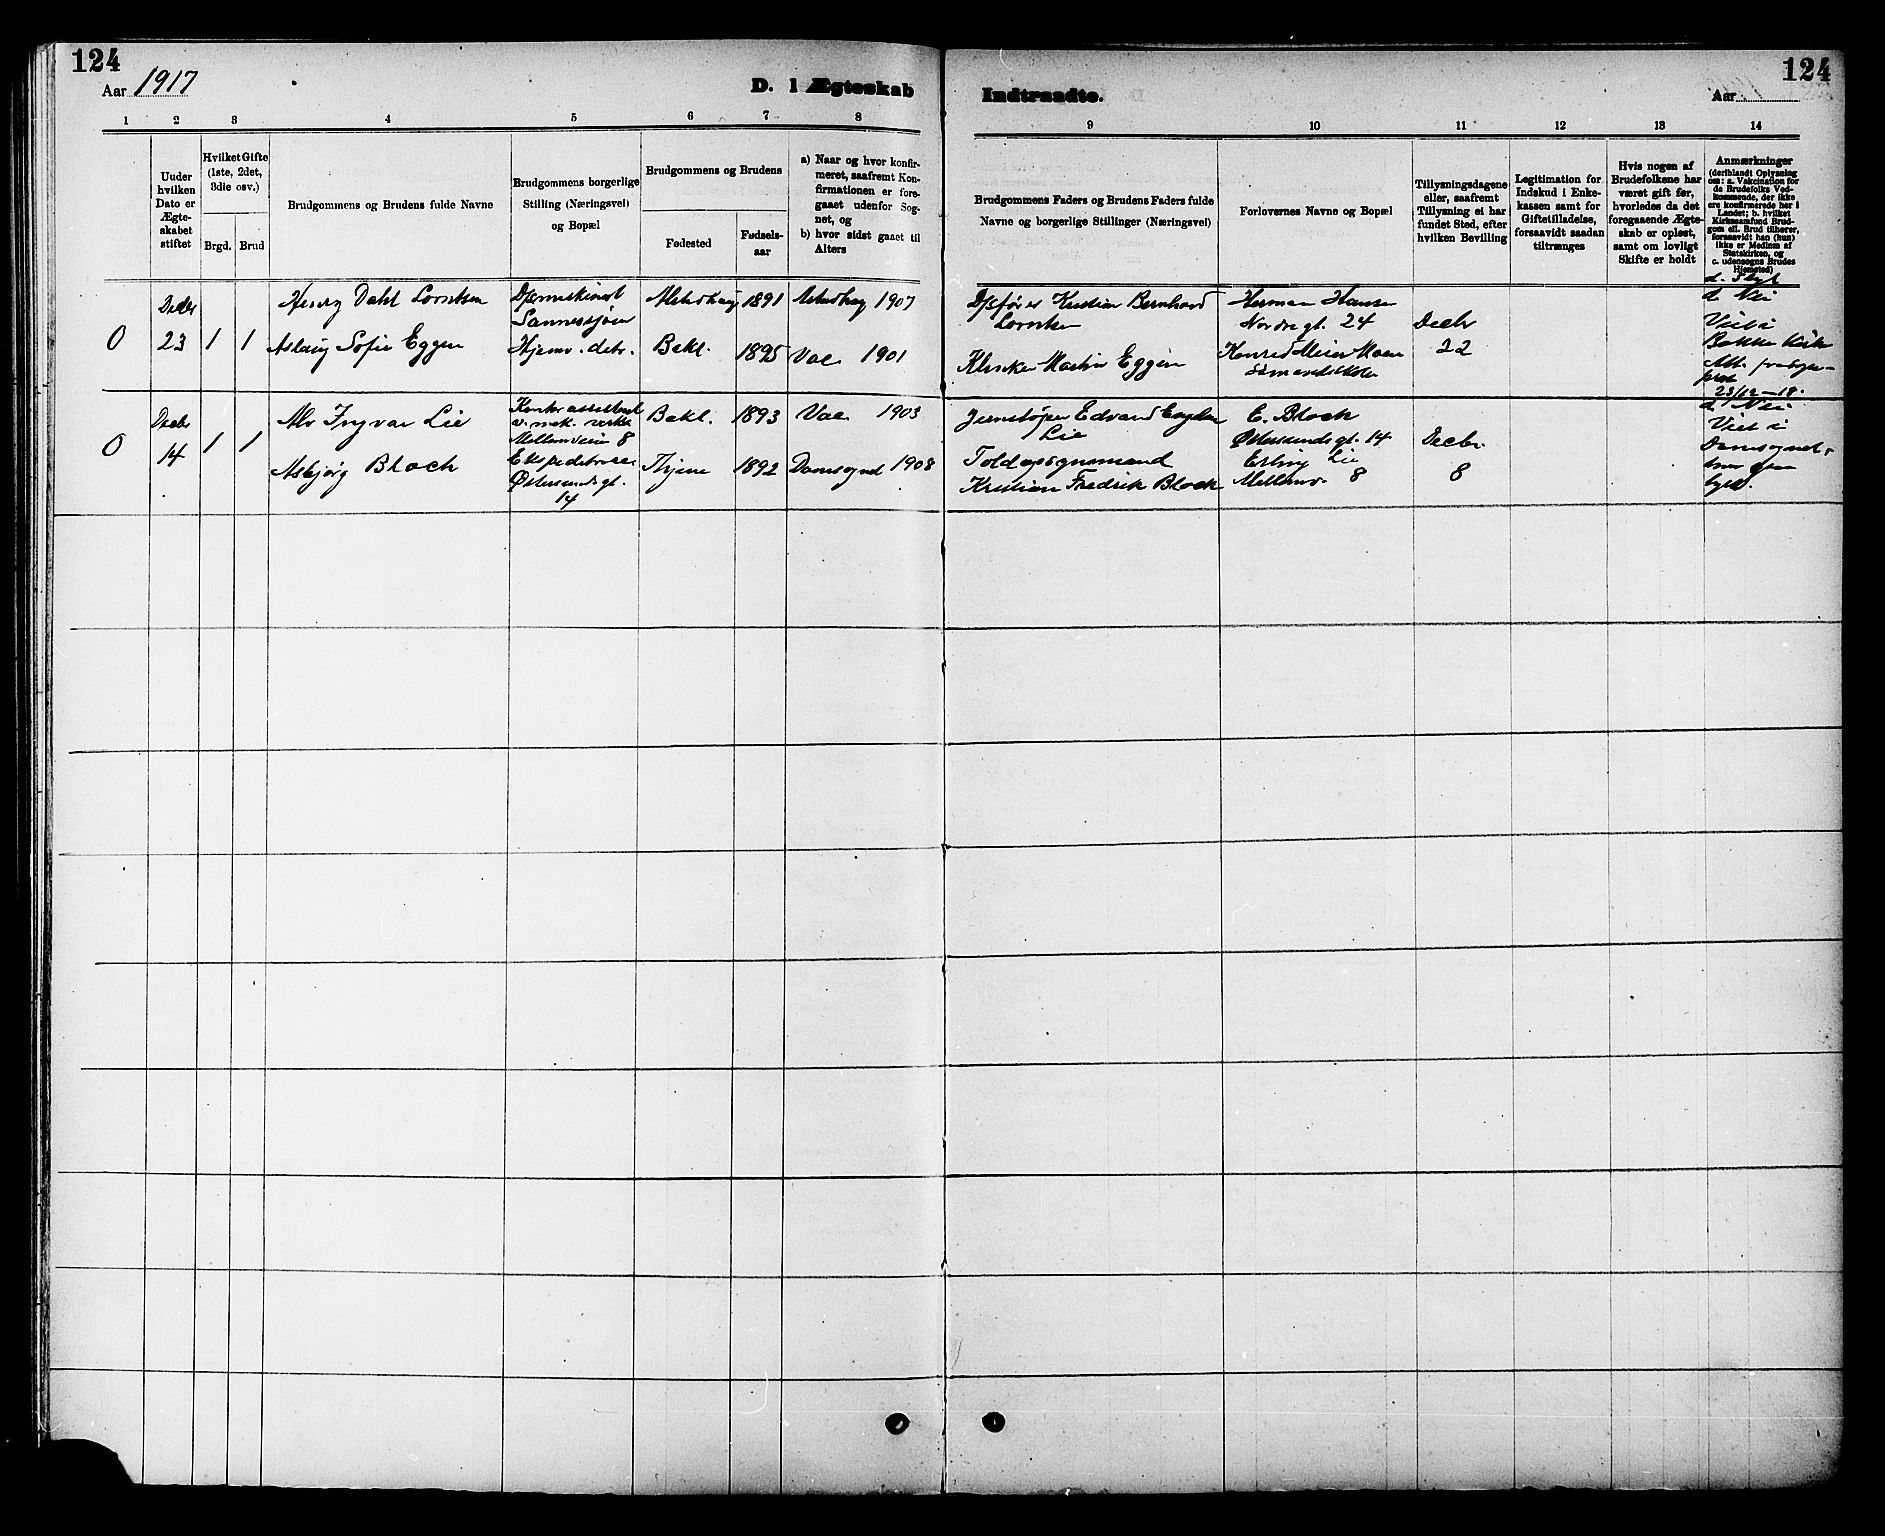 124
Aar 1917
D. 1 Ægteskab
1 2 3 4 5 6 7 8
Under hvilken Dato er Ægteskabet stiftet
Hvilket Gifte (1ste, 2det, 3die osv.)
Brgd. Brud
Brudgommens og Brudens fulde Navne
Brudgommens borgerlige Stilling (Næringsvei) og Bopæl
Brudgommens og Brudens
Fødested
Fødsels-aar
a) Naar og hvor konfirmeret, saafremt Konfirmationen er foregaaet udenfor Sognet, og
b) hvor sidst gaaet til Alters
Indtraadte.
124
Aar
9 10 11 12 13 14
Brudgommens Faders og Brudens Faders fulde Navne og borgerlige Stillinger (Næringsvei)
Forlovernes Navne og Bopæl
Tillysningsdagene eller, saafremt Tillysning ei har fundet Sted, efter hvilken Bevilling
Legitimation for Indskud i Enkekassen samt for Giftetilladelse, forsaavidt saadan tiltrænges
Hvis nogen af Brudefolkene har været gift før, hvorledes da det foregaaende Ægteskab er opløst, samt om lovligt Skifte er holdt
Anmærkninger (deriblandt Oplysning om: a. Vakcination for de Brudefolks Vedkommende, der ikke ere konfirmerede her i Landet; b. hvilket Kirkesamfund Brudgom ell. Brud tilhører, forsaavidt han (hun) ikke er Medlem af Statskirken, og c. udensogns Brudes Hjemsted)
0
Decbr
23
1 1
Henry Dahl Lorntsen
Aslaug Sofie Eggen
Sannessjøen
Hjemv. detv.
Alstadhaug 1891
Bakl. 1895
Alstadhaug 1907
Vae 1901
Kristian Bernhard
Lorntsen
Klinker Martin Eggen
Herman Hansen
Nordregt. 24
Konrad Meier Moen
Decbr
22
d. Nei
Viet i
Bakke Kirke
23/12 – 18.
0
Decbr
14
1 1
Alv Ingvar Lie
Asbjørg Bloch
Kontorassistent
v. mek. verks.
Mellemveien 8
Østersundsgt.
14
Bakl. 1893
1892
Vae 1903
Domsognet 1908
Jernstøper Edvard
Lie
Toldopsynsmand
Kristian Fredrik Bloch
E. Bloch
Østersundsgt. 14
Erling Lie
Mellemv. 8
Decbr.
8
d. Nei
Viet i
Domsognet,